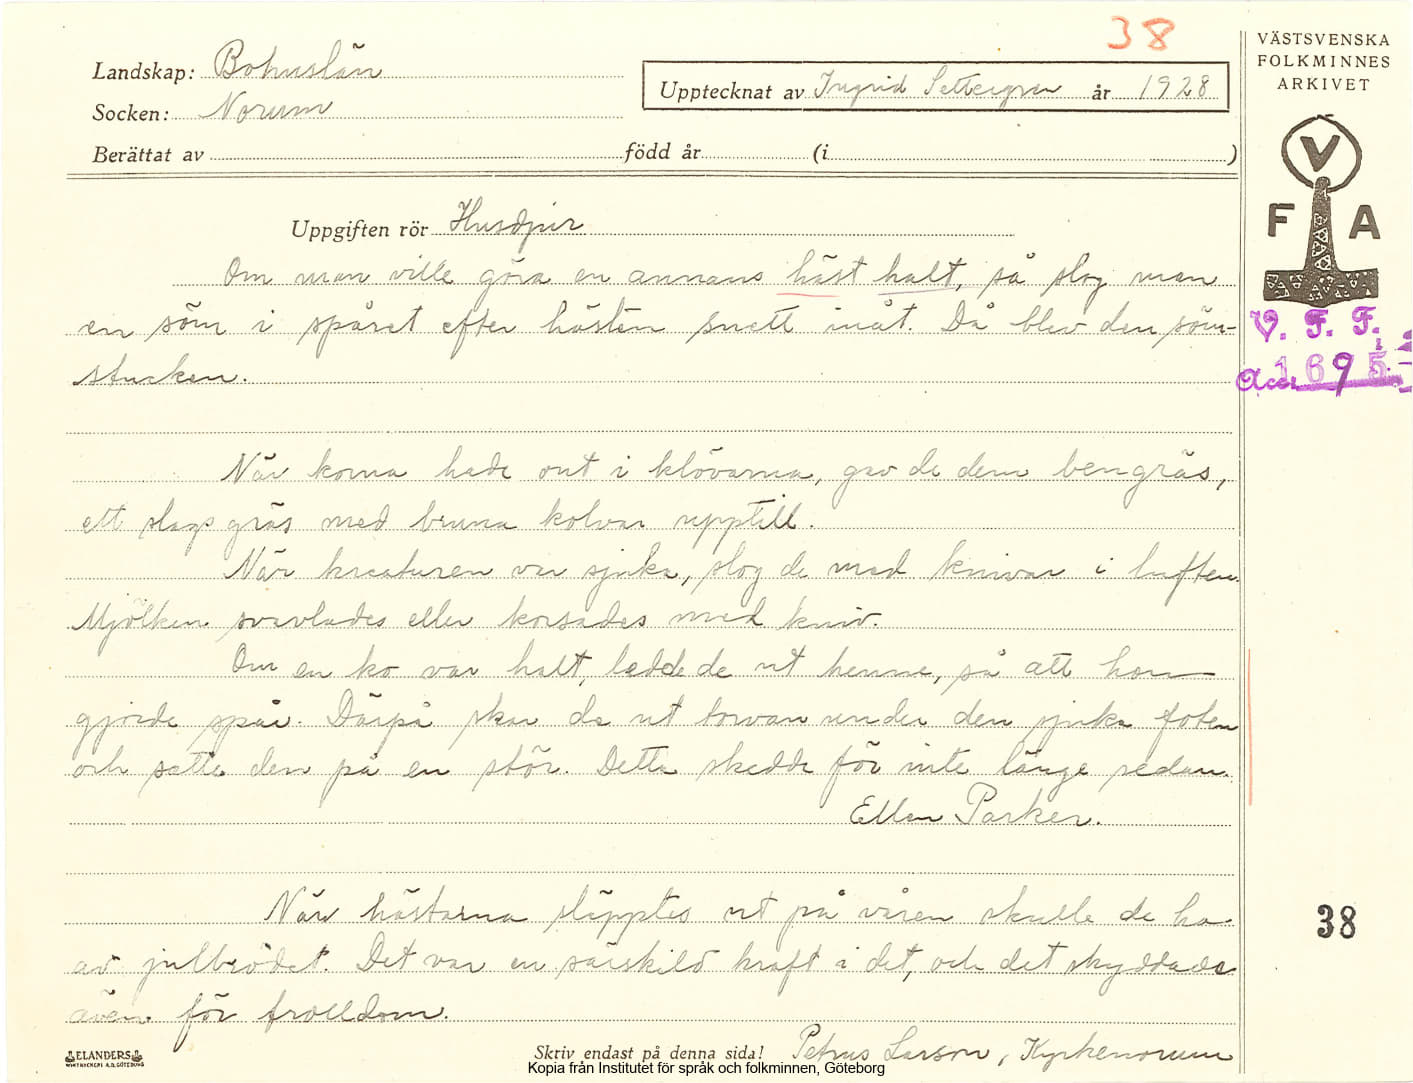 38
VÄSTSVENSKA
FOLKMINNES
ARKIVET
Landskap: Bohuslän
Upptecknat av Ingrid Settergren år 1928
Socken: Norum
Berättat av född år (i )
V
F A
Uppgiften rör Husdjur
Om man ville göra en annans häst halt, så slog man
en söm i spåret efter hästen snett inåt. Då blev den söm-
stucken.
V. F. F.
Acc. 1695
När korna hade ont i klövarna, gav de dem bengräs,
ett slags gräs med bruna kolvar upptill.
När kreaturen var sjuka, slog de med knivar i luften.
Mjölken svavlades eller korsades med kniv.
Om en ko var halt, ledde de ut henne, så att hon
gjorde spår. Därpå skar de ut torvan under den sjuka foten
och satte den på en stör. Detta skedde för inte länge sedan.
Ellen Parker.
När hästarna släpptes ut på våren skulle de ha
av julbrödet. Det var en särskild kraft i det, och det skyddade
även för trolldom.
38
Petrus Larson, Kyrkenorum
Skriv endast på denna sida!
ELANDERS
Kopia från Institutet för språk och folkminnen, Göteborg